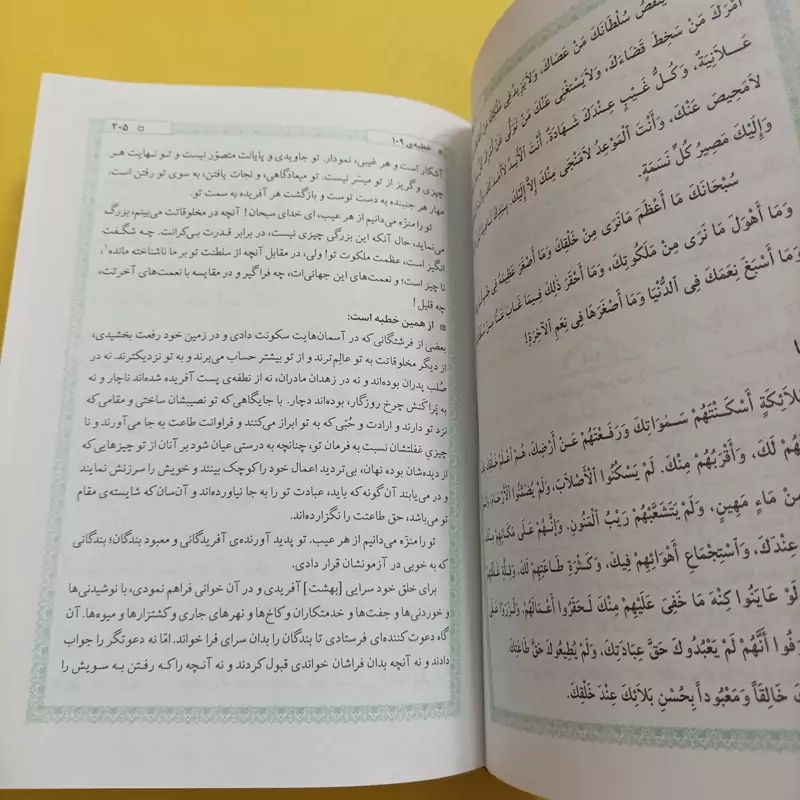 يَنْقُصُ سُلْطَانَكَ مَنْ عَصَاكَ، وَلَا يَزِيدُ فِي مُلْكِكَ مَنْ
أَمْرَكَ مَنْ سَخِطَ قَضَاءَكَ، وَلَا يَسْتَغْنِي عَنْكَ مَنْ تَوَلَّى عَنْ أَمْرِكَ
عَلَانِيَةٌ، وَكُلُّ غَيْبٍ عِنْدَكَ شَهَادَةٌ. أَنْتَ الْأَبَدُ
لَا مَحِيصَ عَنْكَ، وَأَنْتَ الْمَوْعِدُ لَا مَنْجَى مِنْكَ إِلَّا إِلَيْكَ، بِيَدِكَ
وَإِلَيْكَ مَصِيرُ كُلِّ نَسَمَةٍ.
سُبْحَانَكَ مَا أَعْظَمَ مَا نَرَى مِنْ خَلْقِكَ وَمَا أَصْغَرَ عَظِيمَهُ فِي
وَمَا أَهْوَلَ مَا نَرَى مِنْ مَلَكُوتِكَ، وَمَا أَحْقَرَ ذٰلِكَ فِيمَا غَابَ عَنَّا مِنْ
وَمَا أَسْبَغَ نِعَمَكَ فِي الدُّنْيَا وَمَا أَصْغَرَهَا فِي نِعَمِ الْآخِرَةِ!
مَلَائِكَةٍ أَسْكَنْتَهُمْ سَمٰوَاتِكَ وَرَفَعْتَهُمْ عَنْ أَرْضِكَ، هُمْ أَعْلَمُ خَلْقِكَ
لَكَ، وَأَقْرَبُهُمْ مِنْكَ. لَمْ يَسْكُنُوا الْأَصْلَابَ، وَلَمْ يُضَمَّنُوا الْأَرْحَامَ
مِنْ مَاءٍ مَهِينٍ، وَلَمْ يَتَشَعَّبْهُمْ رَيْبُ الْمَنُونِ. وَإِنَّهُمْ عَلَى مَكَانِهِمْ
عِنْدَكَ، وَاسْتِجْمَاعِ أَهْوَائِهِمْ فِيكَ، وَكَثْرَةِ طَاعَتِهِمْ لَكَ، وَقِلَّةِ
لَوْ عَايَنُوا كُنْهَ مَا خَفِيَ عَلَيْهِمْ مِنْكَ لَحَقَّرُوا أَعْمَالَهُمْ، وَلَزَرَوْا عَلَى
أَنَّهُمْ لَمْ يَعْبُدُوكَ حَقَّ عِبَادَتِكَ، وَلَمْ يُطِيعُوكَ حَقَّ طَاعَتِكَ.
خَالِقاً وَمَعْبُوداً بِحُسْنِ بَلَائِكَ عِنْدَ خَلْقِكَ.
خطبه‌ی ۱۰۹ ۲۰۵
آشکار است و هر غیبی، نمودار. تو جاویدی و پایانت متصوّر نیست و تو نهایت هر
چیزی و گریز از تو میسّر نیست. تو میعادگاهی، و نجات یافتن، به سوی تو رفتن است.
مهار هر جنبنده به دست توست و بازگشت هر آفریده به سمت تو.
تو را منزّه می‌دانیم از هر عیب، ای خدای سبحان! آنچه در مخلوقاتت می‌بینم، بزرگ
می‌نماید، حال آنکه این بزرگی چیزی نیست، در برابر قدرت بی‌کرانت. چه شگفت
انگیز است، عظمت ملکوت تو! ولی، در مقابل آنچه از سلطنت تو بر ما ناشناخته مانده۱،
ناچیز است؛ و نعمت‌های این جهانی‌ات، چه فراگیر و در مقایسه با نعمت‌های آخرتت،
چه قلیل!
از همین خطبه است:
بعضی از فرشتگانی که در آسمان‌هایت سکونت دادی و در زمین خود رفعت بخشیدی،
از دیگر مخلوقاتت به تو عالِم‌ترند و از تو بیشتر حساب می‌برند و به تو نزدیکترند. نه در
صُلب پدران بوده‌اند و نه در زهدان مادران، نه از نطفه‌ی پست آفریده شده‌اند ناچار و نه
به پَراکَنش چرخ روزگار، بوده‌اند دچار. با جایگاهی که تو نصیبشان ساختی و مقامی که
نزد تو دارند و ارادت و حُبّی که به تو ابراز می‌کنند و فراوانت طاعت به جا می‌آورند و نا
چیزیِ غفلتشان نسبت به فرمان تو، چنانچه به درستی عیان شود بر آنان از تو چیزهایی که
از دیده‌شان بوده نهان، بی‌تردید اعمال خود را کوچک بینند و خویش را سرزنش نمایند
و در می‌یابند آن گونه که باید، عبادت تو را به جا نیاورده‌اند و آن‌سان که شایسته‌ی مقام
تو می‌باشد، حق طاعتت را نگزارده‌اند.
تو را منزّه می‌دانیم از هر عیب. تو پدید آورنده‌ی آفریدگانی و معبود بندگان؛ بندگانی
که به خوبی در آزمونشان قرار دادی.
برای خلق خود سرایی [بهشت] آفریدی و در آن خوانی فراهم نمودی، با نوشیدنی‌ها
و خوردنی‌ها و جفت‌ها و خدمتکاران و کاخ‌ها و نهرهای جاری و کشتزارها و میوه‌ها. آن
گاه دعوت کننده‌ای فرستادی تا بندگان را بدان سرای فرا خواند. امّا نه دعوتگر را جواب
دادند و نه آنچه بدان فراشان خواندی قبول کردند و نه آنچه را که رفتن به سویش را